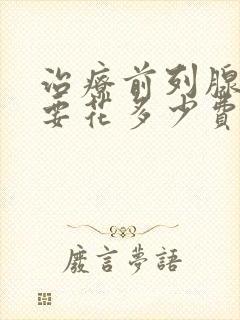 治療前列腺
要花多少費
廢言夢語